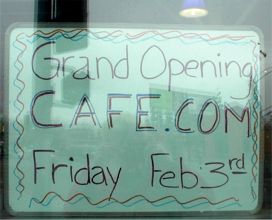 Grand Opening
CAFE.COM
Friday Feb 3rd